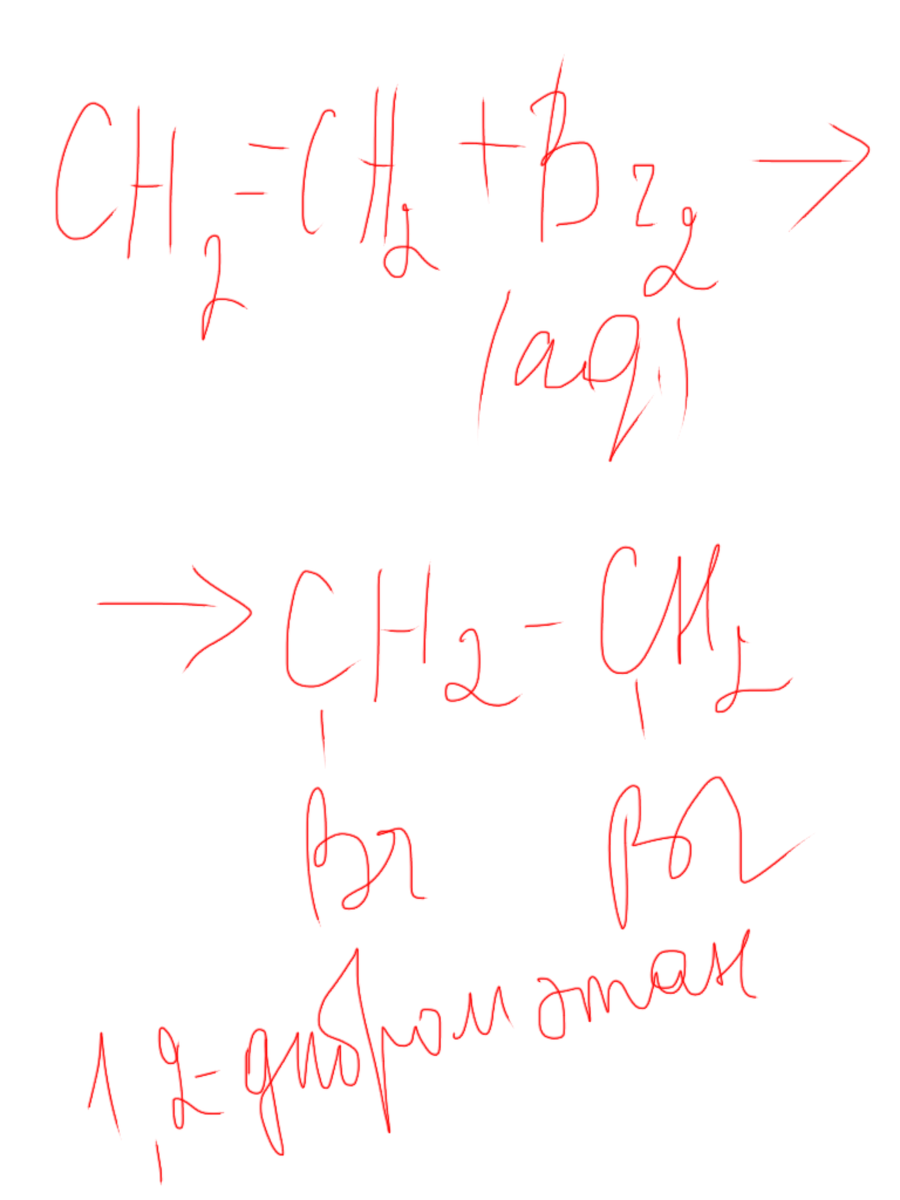 CH₂=CH₂ + Br₂ →
(aq)
→ CH₂-CH₂
Br Br
1,2-дибромэтан